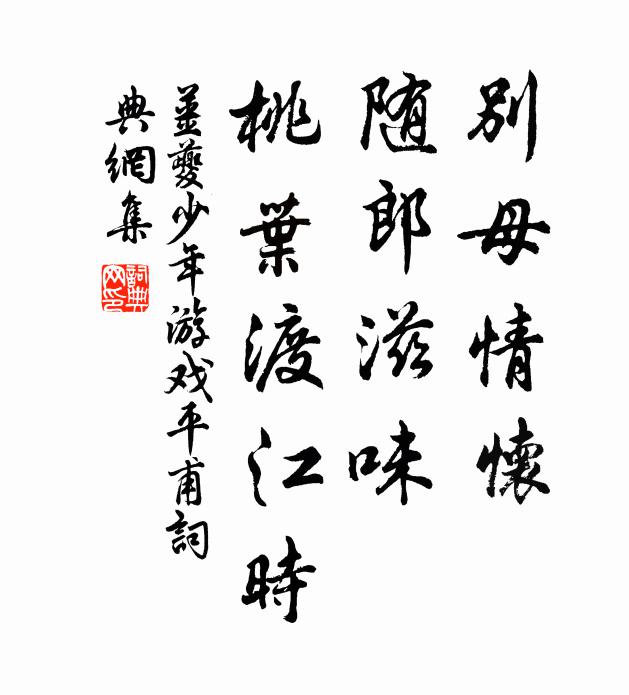 别母情懷
随郎滋味
桃葉渡江時
姜夔少年游戏平甫詞
典網集
詞典网印